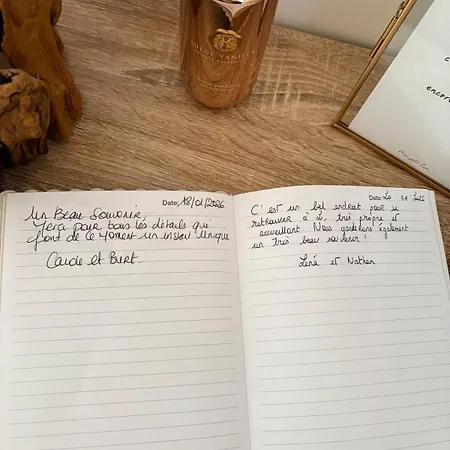 SUEDE VANILLA
encore
Date: 18/01/2026
Un Beau Souvenir,
Merci pour tous les détails qui
font de ce moment un instant unique
et
Date: 20 01
C'est un bel endroit pour se
retrouver à 2, très propre et
accueillant. Nous garderons également
un très beau souvenir !
Léna et Nathan